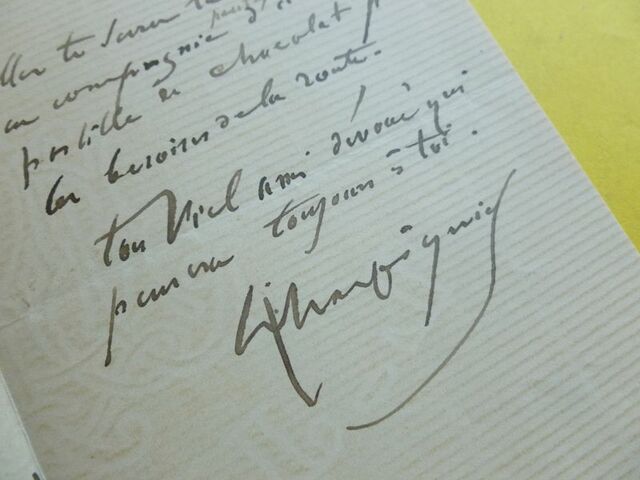 compagnie
pastille de chocolat
les besoins de la route.
ton vieil ami dévoué qui
pensera toujours à toi.